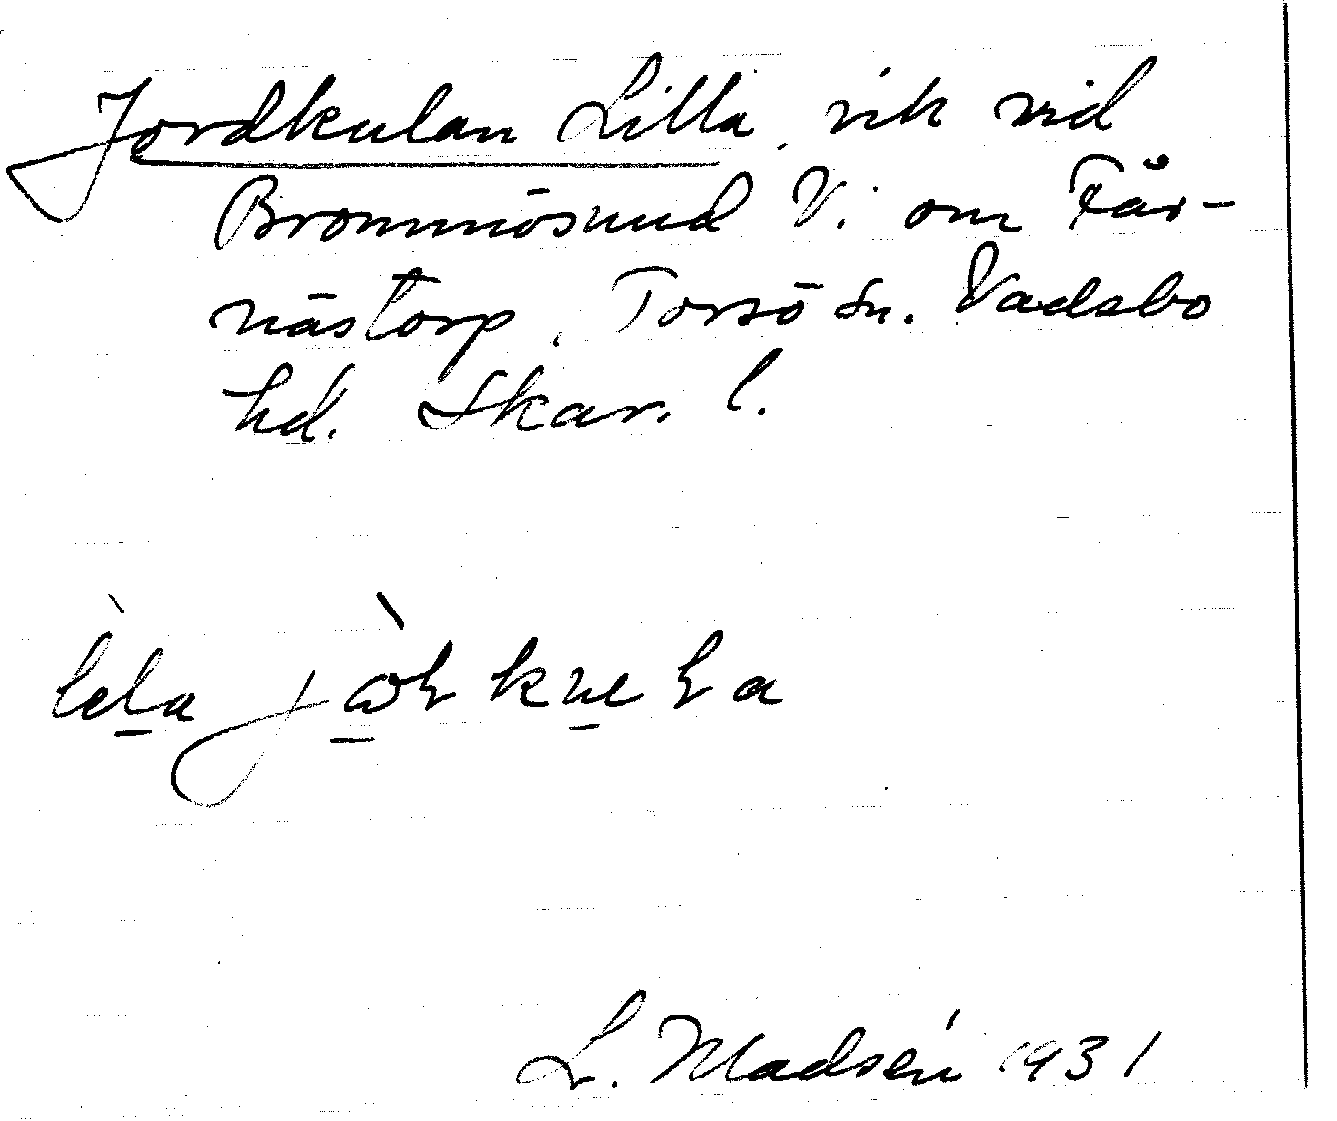 Jordkulan Lilla, vik vid
Brommösund V. om Får-
nästorp, Torsö sn. Vadsbo
hd. Skar. l.
lèla
L. Madsén 1931